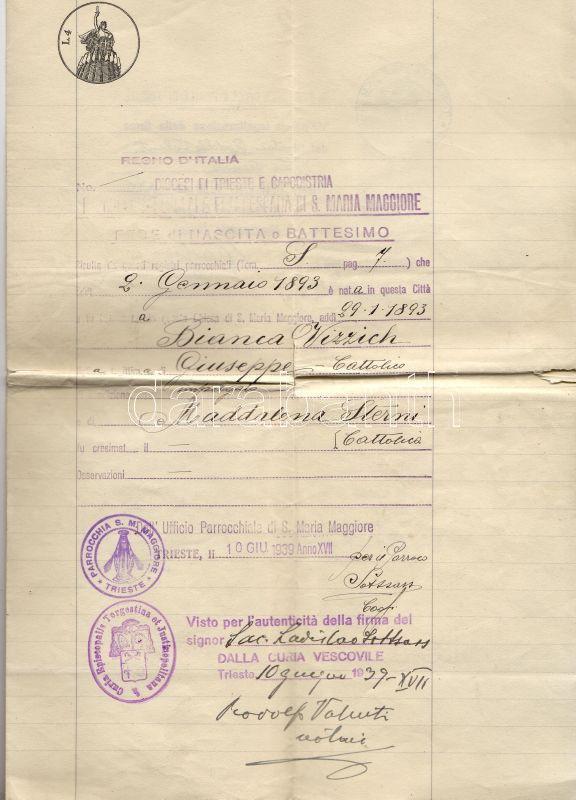 L. 4
REGNO D'ITALIA
No.
DIOCESI DI TRIESTE E CAPODISTRIA
DI S. MARIA MAGGIORE
FEDE di NASCITA e BATTESIMO
registri parrocchiali (Tom. S pag. 7.) che
2. Gennaio 1893 è nata in questa Città
Chiesa di S. Maria Maggiore, addì 29.1.1893
Bianca Vizzich
Giuseppe Cattolico
impiegato
e di Maddalena Sterni
Cattolica
fu cresimat. il —
Osservazioni —
Dall' Ufficio Parrocchiale di S. Maria Maggiore
TRIESTE, li 10 GIU 1939 Anno XVII
per il Parroco
Coop
PARROCCHIA S. M. MAGGIORE
TRIESTE
S. Curia Episcopalis Tergestina et Justinopolitana
Visto per l'autenticità della firma del
signor Sac. Ladislao
DALLA CURIA VESCOVILE
Trieste 10 giugno 1939-XVII
darabanth